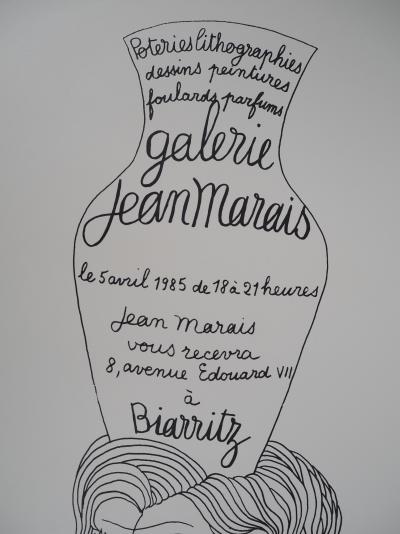 Poteries lithographies
dessins peintures
foulards parfums
galerie
Jean Marais
le 5 avril 1985 de 18 à 21 heures
Jean Marais
vous recevra
8, avenue Edouard VII
à
Biarritz